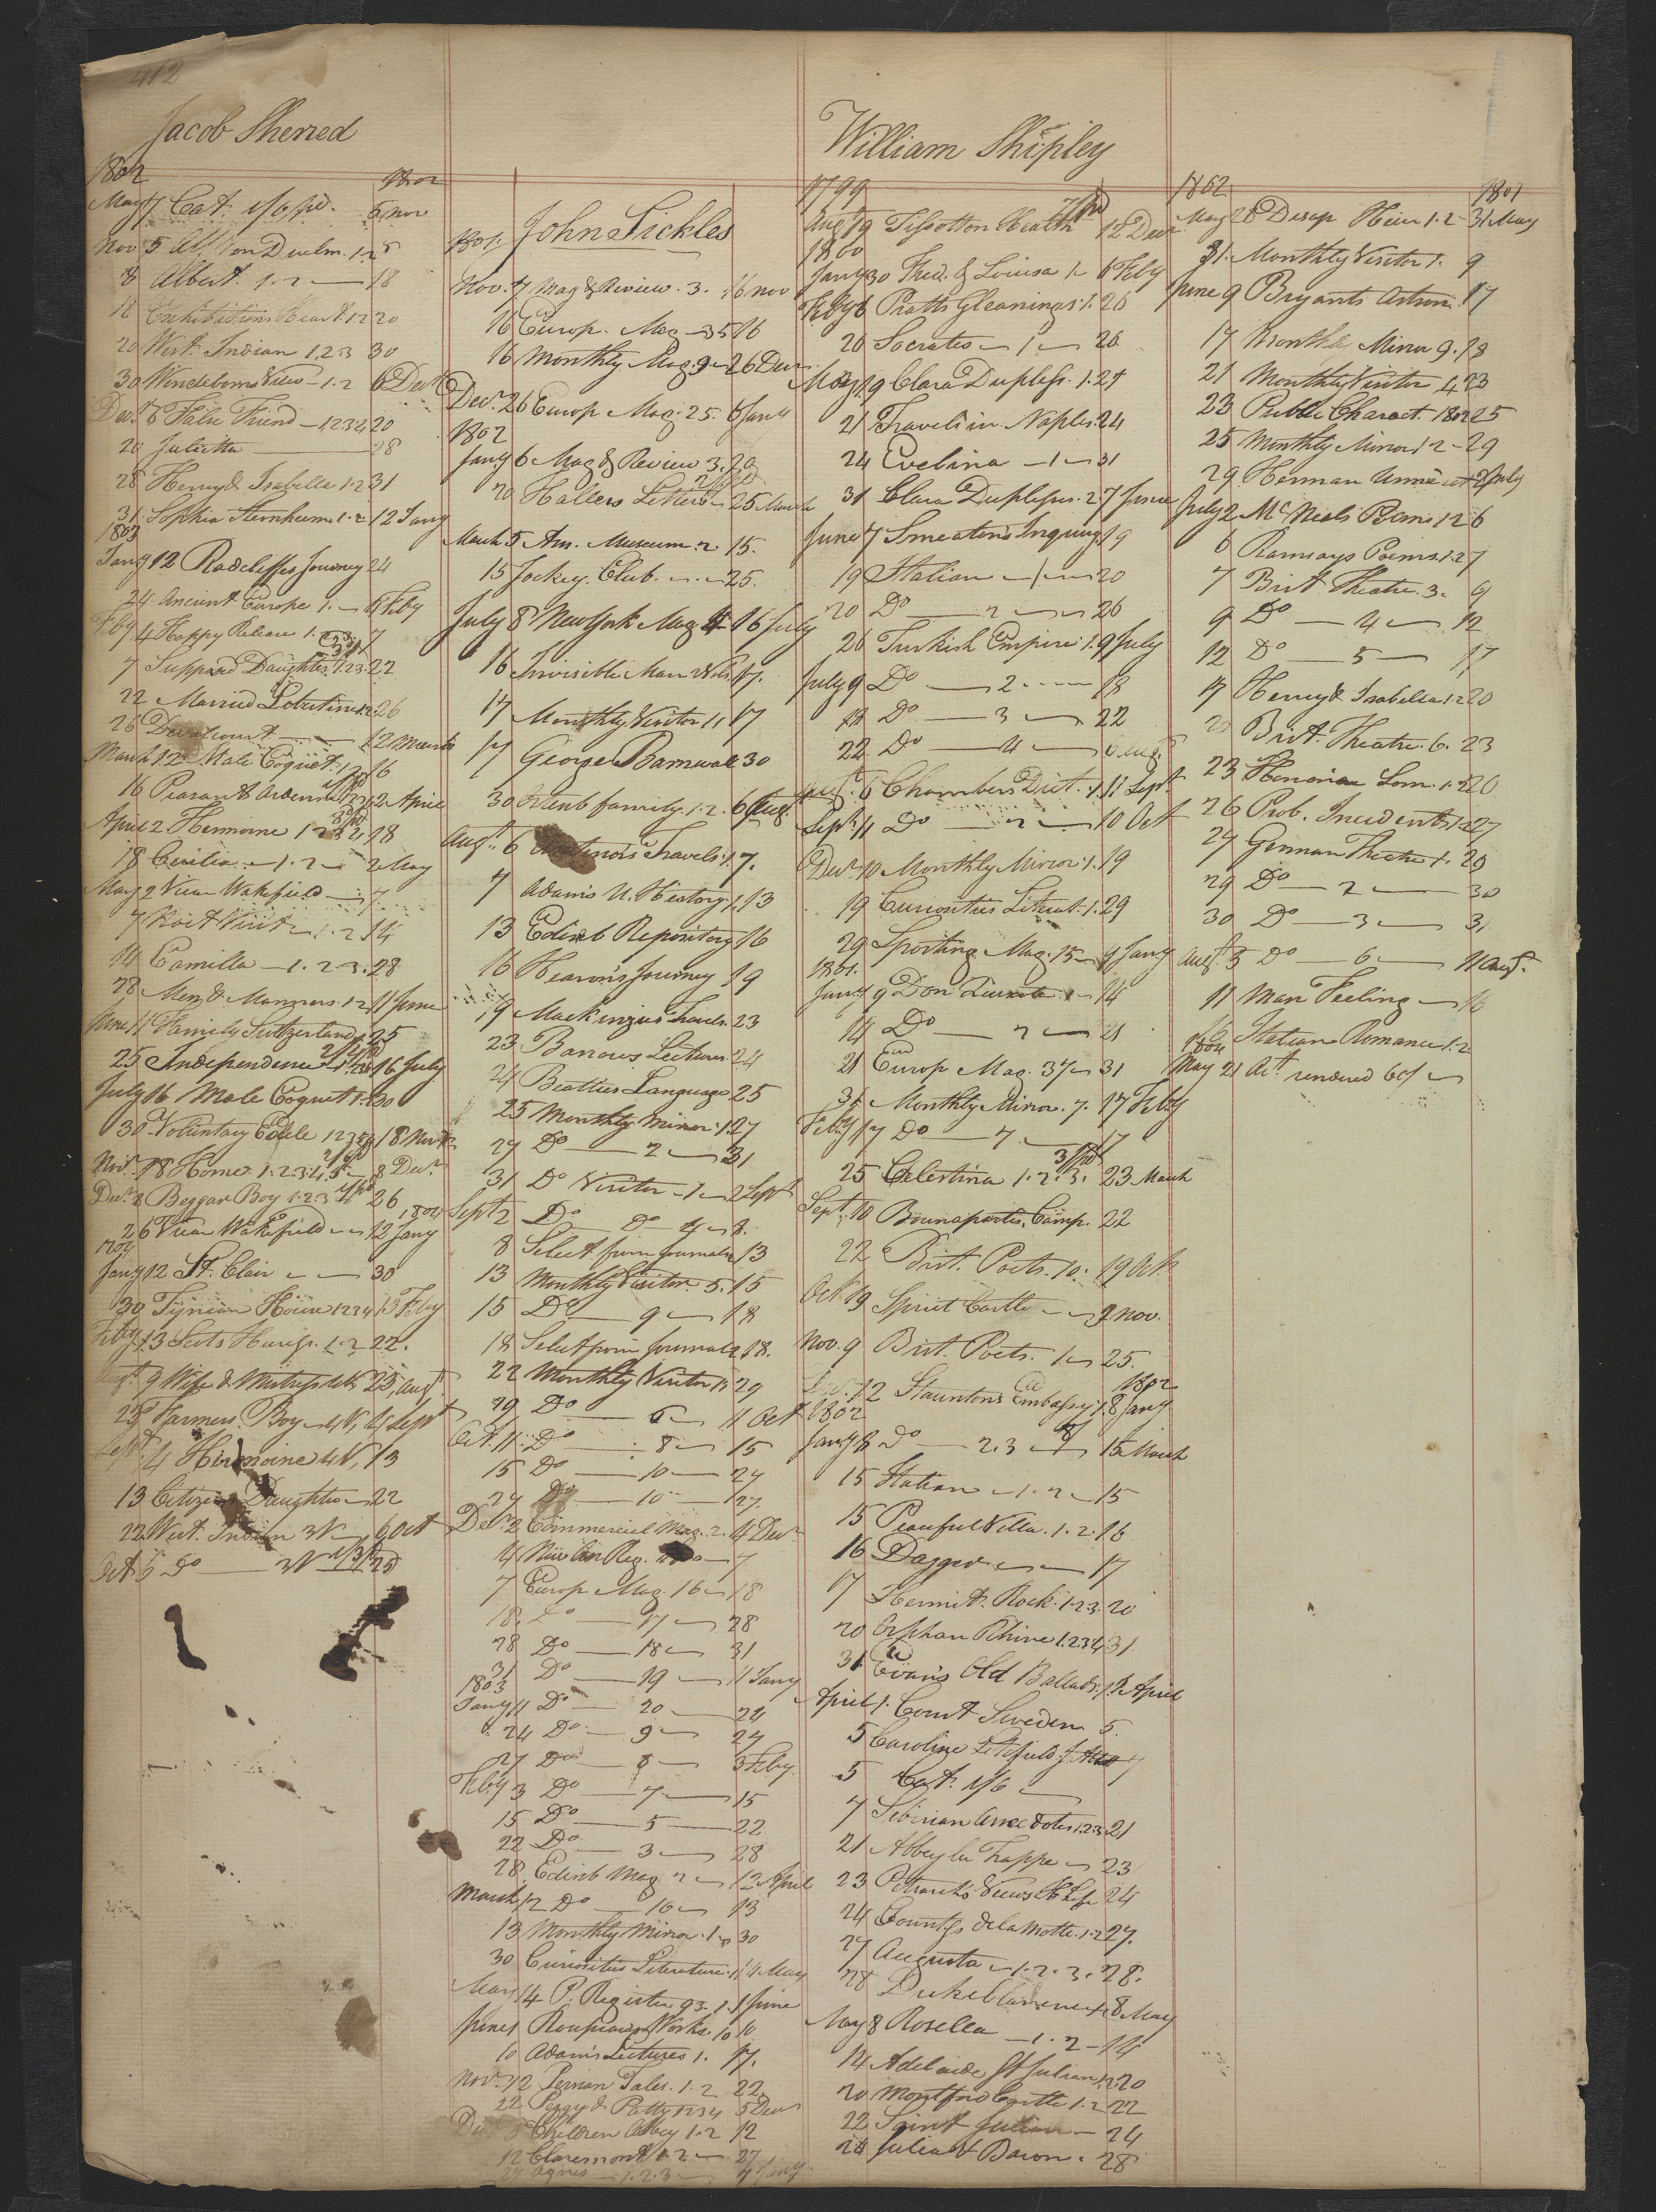 412
Jacob Sherred
1802 1802
May 7 Cat. 1/6 pd. 5 Nov
Nov 5 1.2 8
8 Albert. 1.2 18
18 Exhibitions Heart 1.2 20
20 West Indian 1.2.3 30
30 Wendeborns View 1.2 6 Decr
Decr 6 False Friend 1234 20
20 Julietta 28
28 Henry & Isabella 1.2 31
31 Sophia Sternheim 1.2 12 Jany
1803
Jany 12 Radcliffes Journey 24
24 Ancient Europe 1. 4 Feby
Feby 4 Happy Release 1.2.3 7
7 Supposed Daughter 1.2.3 22
22 Married Libertine 1.2 26
26 Devalcourt 12 March
March 12 Male Coquet 1.2 16
16 Peasant Ardenne 1234 2 April
April 2 Hermoine 1234 18
18 Cecilia 1.2 2 May
May 2 Vicar Wakefield 7
7 Visit 1.2 14
14 Camilla 1.2.3. 28
28 Men & Manners 1.2 11 June
June 11 Family Switzerland 25
25 Independence 16 July
July 16 Male Coquet 1.2 30
30 Voluntary Exile 12345 18 Novr
Novr 18 Home 1.2.3.4.5 8 Decr
Decr 8 Beggar Boy 1.2.3 26
1804
26 Vicar Wakefield 12 Jany
1804
Jany 12 St. Clair 30
30 Tynian House 1234 13 Feby
Feby 13 Scots Heiress 1.2 22.
Augt 9 Wife & Mistress 4 Vs 25 Augt
25 Farmers Boy 4 V, 4 Sept
Sept 4 Hermoine 4 V, 13
13 Citizens Daughter 22
22 West Indian 3 V 5 Oct
Oct 5 Do 3 V 25
John Sickles
1801.
Nov. 7 Mag & Review. 3. 16 Nov
16 Europ. Mag 35 16
16 Monthly Mag. 9 26 Decr
Decr 26 Europ Mag. 25. 6 Jany
1802
Jany 6 Mag & Review 3. 20
20 Hallers Letters 25 March
March 5 Am. Museum. 2 15.
15 Jockey Club. 25.
July 8 New York Mag 4 16 July
16 Invisible Man 17.
17 Monthly Visitor 11 17
17 George Barnwell 30
30 family 1.2. 6 Aug.
Augt 6 Travels 1 7.
7 Adams U. History 1, 13
13 Edinb Repository 16
16 Hearons Journey 19
19 Mackinzies Travels. 23
23 Barrows Lectures 24
24 Beatties Language 25
25 Monthly Mirror 1. 27
27 Do 2 31
31 Do Visitor 1 2 Sept
Sept 2 Do Do 4 8.
8 Select. from Journals 13
13 Monthly Visitor. 5. 15
15 Do 9 18
18 Select from Journals 2 18.
22 Monthly Visitor 29
29 Do 6 11 Oct
Oct. 11 Do 8 15
15 Do 10 27
27 Do 10 27.
Decr 2 Commercial Mag. 2. 4 Decr
4 New An Reg. 7
7 Europ Mag. 16 18
18. Do 17 28
28 Do 18 31
31 Do 19 11 Jany
1803
Jany 11 Do 20 24
24 Do 9 27
27 Do 8 3 Feby
Feby 3 Do 7 15
15 Do 5 22
22 Do 3 28
28 Edinb Mag 2 12 April
March 12 Do 10 13
13 Monthly Mirror. 1 30
30 Curiosities Literature. 1 4 May
May 4 P. Register 93. 1. 1 June
June 1 Works. 10 10
10 Adams Lectures 1. 17.
Novr 12 Persian Tales. 1.2 22
22 Peggy & Patty 1234 5 Decr
Decr 5 Children Abbey 1.2 12
12 Claremont 1.2 27
27 Agnes 1.2.3 4 Jany
William Shipley
1799
Augt 19 Tissot on Health 12 Decr
1800
Jany 30 Fred. & Louisa 1 6 Feby
Feby 6 Pratts Gleanings 1. 20
20 Socrates 1 26
May 19 Clara Duplessis. 1. 21
21 Travels in Naples. 24
24 Evelina 1 31
31 Clara Duplessis. 2 7 June
June 7 Smeatons Inquiry 19
19 Italian 1 20
20 Do 2 26
26 Turkish Empire. 1. 9 July
July 9 Do 2 18
18 Do 3 22
22 Do 4 6 Augt
Augt 6 Chambers Dict. 1. 11 Sept.
Sept. 11 Do 2 10 Oct
Decr 10 Monthly Mirror. 1. 19
19 Curiosities Literat. 1. 29
29 Sporting Mag. 15 9 Jany
1801.
Jany 9 Don Quixote 1 14
14 Do 2 21
21 Europ Mag. 37 31
31 Monthly Mirror. 7. 17 Feby
Feby 17 Do 7 17
25 Celestina 1.2.3. 23 March
Sept. 10 Bounapartes Camp. 22
22 Brit. Poets. 10. 19 Oct.
Oct. 19 Spirit Castle 9 Nov.
Nov. 9 Brit. Poets. 1 25.
1802
Decr. 12 Stauntons Embassy 1. 8 Jany
1802
Jany 8 Do 2.3 15 March
15 Italian 1.2 15
15 Peaceful Villa. 1.2. 16
16 Dagger 17
17 Hermit. Rock. 1.2.3. 20
20 Orphan Rhine 1.2.3.4 31
31 Evans Old Ballads. 1 April
April 1. Court Sweden 5.
5 Caroline Litchfield 7
5 Cat. 1/6
7 Siberian Anecdotes 1.2.3. 21
21 Abbey la Trappe 23
23 Petrarchs Views H. Life 24
24 Countess de la Motte. 1.2 27.
27 Augusta 1.2.3. 28.
28 Duke Clarence 8 May
May 8 Rosella 1.2 14
14 Adelaide St Julian 1.2 20
20 Montford Castle 1.2 22
22 Saint Julian 24
24 Julia & Baron. 28
1802 1802
May 28 Desap Heir 1.2 31 May
31. Monthly Visitor 1. 9
June 9 Bryants Astron. 17
17 Monthly Mirror 9. 18
21 Monthly Visitor 4 23
23 Public Charact. 1802 25
25 Monthly Mirror 12 29
29 Herman Unna 2 July
July 2 McNeals Poems 1.2 6
6 Ramsays Poems. 1.2 7
7 Brit Theatre. 3. 9
9 Do 4 12
12 Do 5 17
17 Henry & Isabella 1.2 20
20 Brit. Theatre. 6. 23
23 Honoriae Som. 1.2 26
26 Prob. Incidents 1.2 27
27 German Theatre 1. 29
29 Do 2 30
30 Do 3 31
Augt 3 Do 6 11 Augt.
11 Man Feeling 16
16 Italian Romance 1.2
1804
May 21 Act rendered